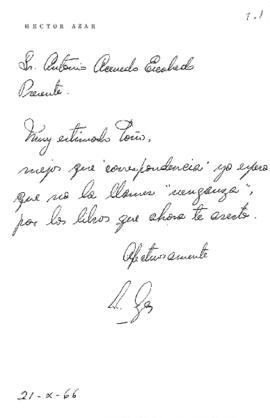 7.1
HECTOR AZAR
Sr. Antonio Acevedo Escobedo
Presente.
Muy estimado Toño,
mejor que "correspondencia" yo espero
que no la llames "venganza",
por los libros que ahora te asesto.
Afectuosamente
21-X-66